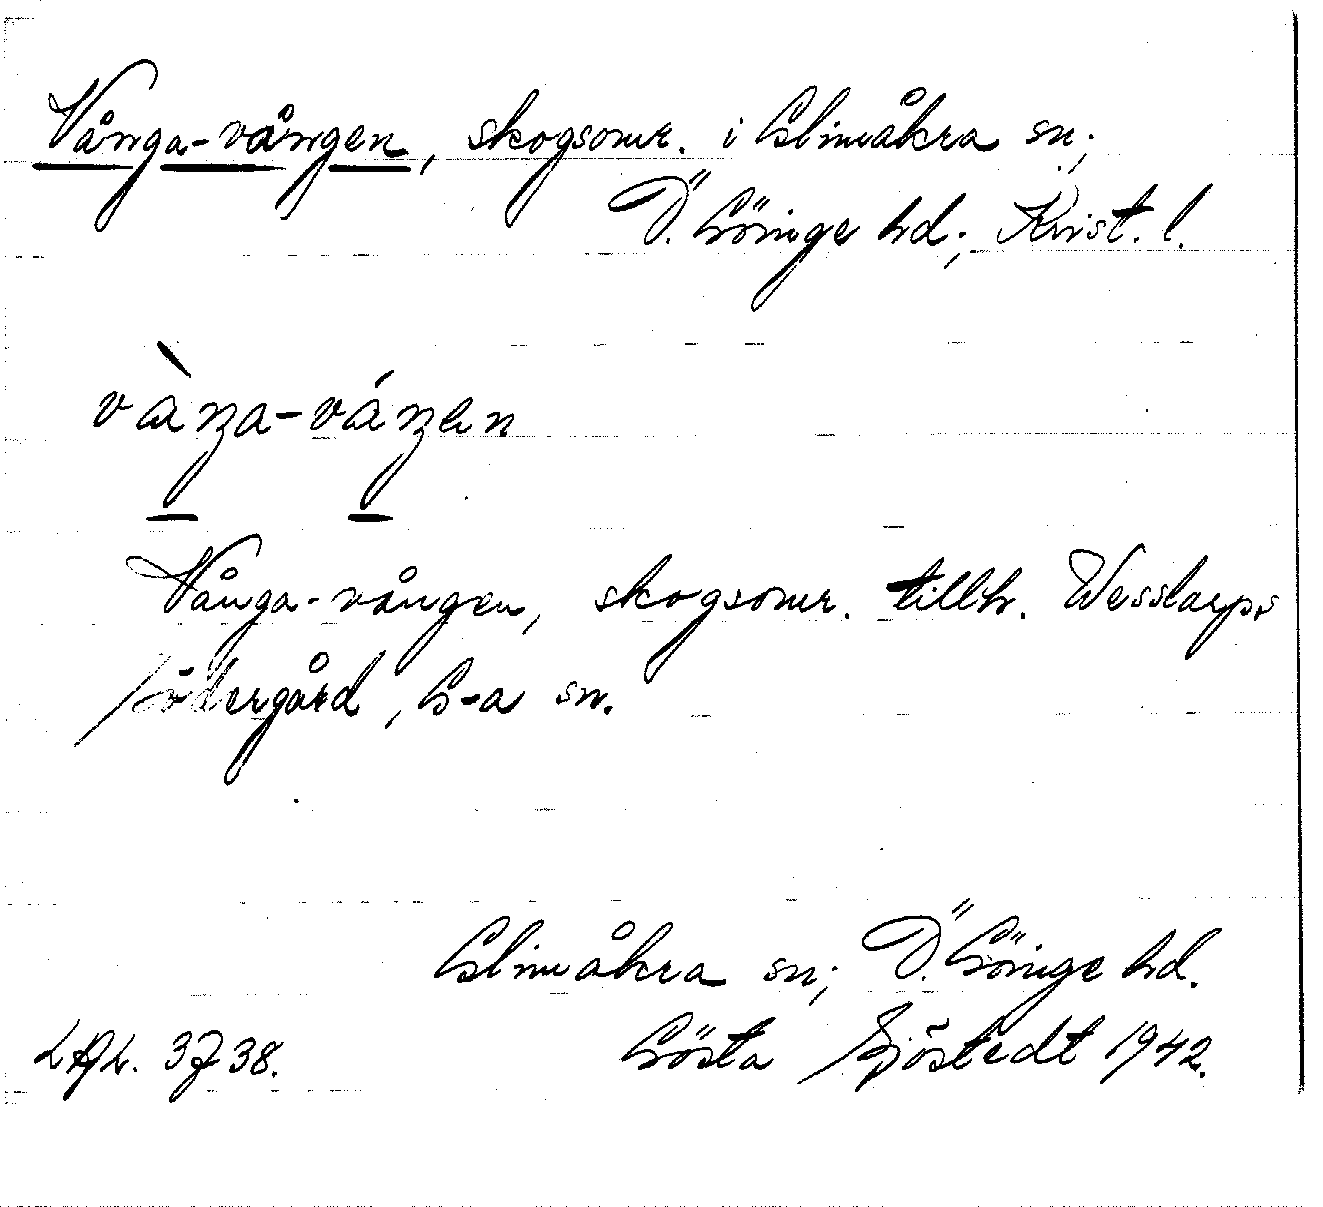 Vånga-vången, skogsomr. i Glimåkra sn;
Ö. Göinge hd; Krist. l.
vàŋa-váŋen
Vånga-vången, skogsomr. tillh. Wesslarps
Södergård, G-a sn.
Glimåkra sn; Ö. Göinge hd.
Gösta Sjöstedt 1942.